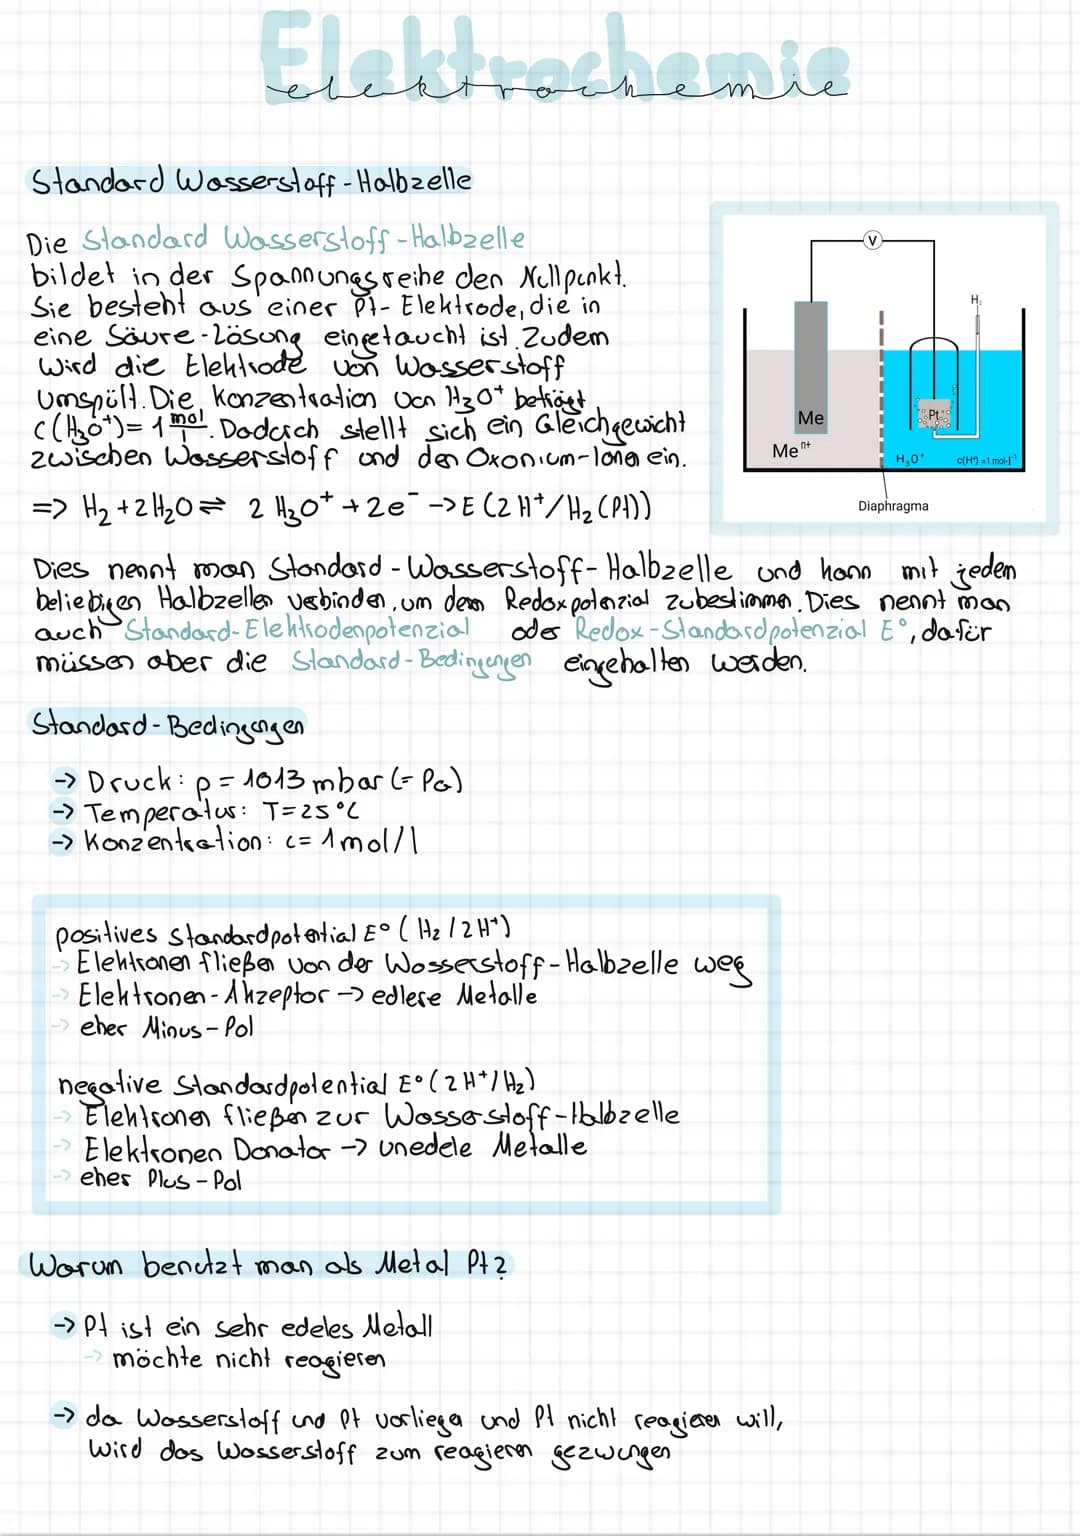 Elektrochemie
elektrochemie
Standard Wasserstoff-Halbzelle
Die Standard Wasserstoff-Halbzelle
bildet in der Spannungsreihe den Nullpunkt.
Sie besteht aus einer Pt-Elektrode, die in
eine Säure-Lösung eingetaucht ist. Zudem
wird die Elektrode von Wasserstoff
umspült. Die Konzentration von H₃O⁺ beträgt
c(H₃O⁺)= 1 mol/l. Dadurch stellt sich ein Gleichgewicht
zwischen Wasserstoff und den Oxonium-Ionen ein.
=> H₂ + 2 H₂O ⇌ 2 H₃O⁺ + 2e⁻ -> E (2 H⁺/H₂ (Pt))
V
H₂
Me
Pt
Meⁿ⁺
H₃O⁺
c(H⁺) =1 mol·l⁻¹
Diaphragma
Dies nennt man Standard-Wasserstoff-Halbzelle und kann mit jedem
beliebigen Halbzellen verbinden, um dem Redoxpotenzial zubestimmen. Dies nennt man
auch Standard-Elektrodenpotenzial oder Redox-Standardpotenzial E°, dafür
müssen aber die Standard-Bedingungen eingehalten werden.
Standard-Bedingungen
-> Druck: p = 1013 mbar (= Pa)
-> Temperatur: T=25°C
-> Konzentration: c= 1mol/l
positives Standardpotential E° (H₂ / 2H⁺)
-> Elektronen fließen von der Wasserstoff-Halbzelle weg
-> Elektronen-Akzeptor -> edlere Metalle
-> eher Minus-Pol
negative Standardpotential E° (2H⁺/H₂)
-> Elektronen fließen zur Wasserstoff-Halbzelle
-> Elektronen Donator -> unedele Metalle
-> eher Plus-Pol
Warum benutzt man als Metal Pt?
-> Pt ist ein sehr edeles Metall
-> möchte nicht reagieren
-> da Wasserstoff und Pt vorliegen und Pt nicht reagieren will,
wird das Wasserstoff zum reagieren gezwungen